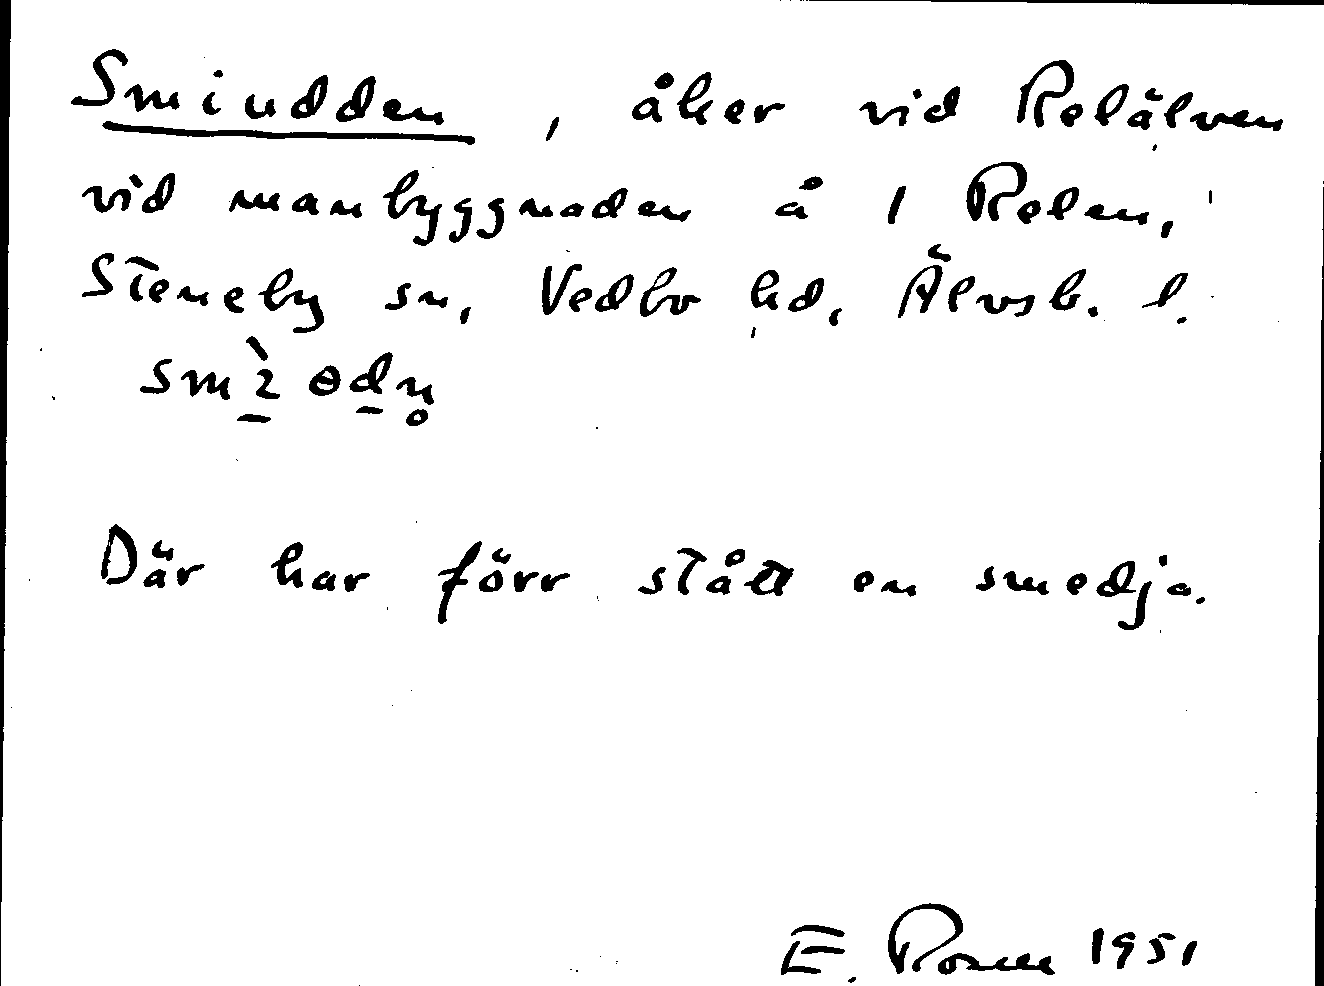 Smiudden, åker vid Relälven
vid manbyggnaden å 1 Relen,
Steneby sn, Vedbo hd, Älvsb. l.
Där har förr stått en smedja.
E. Rosell 1951